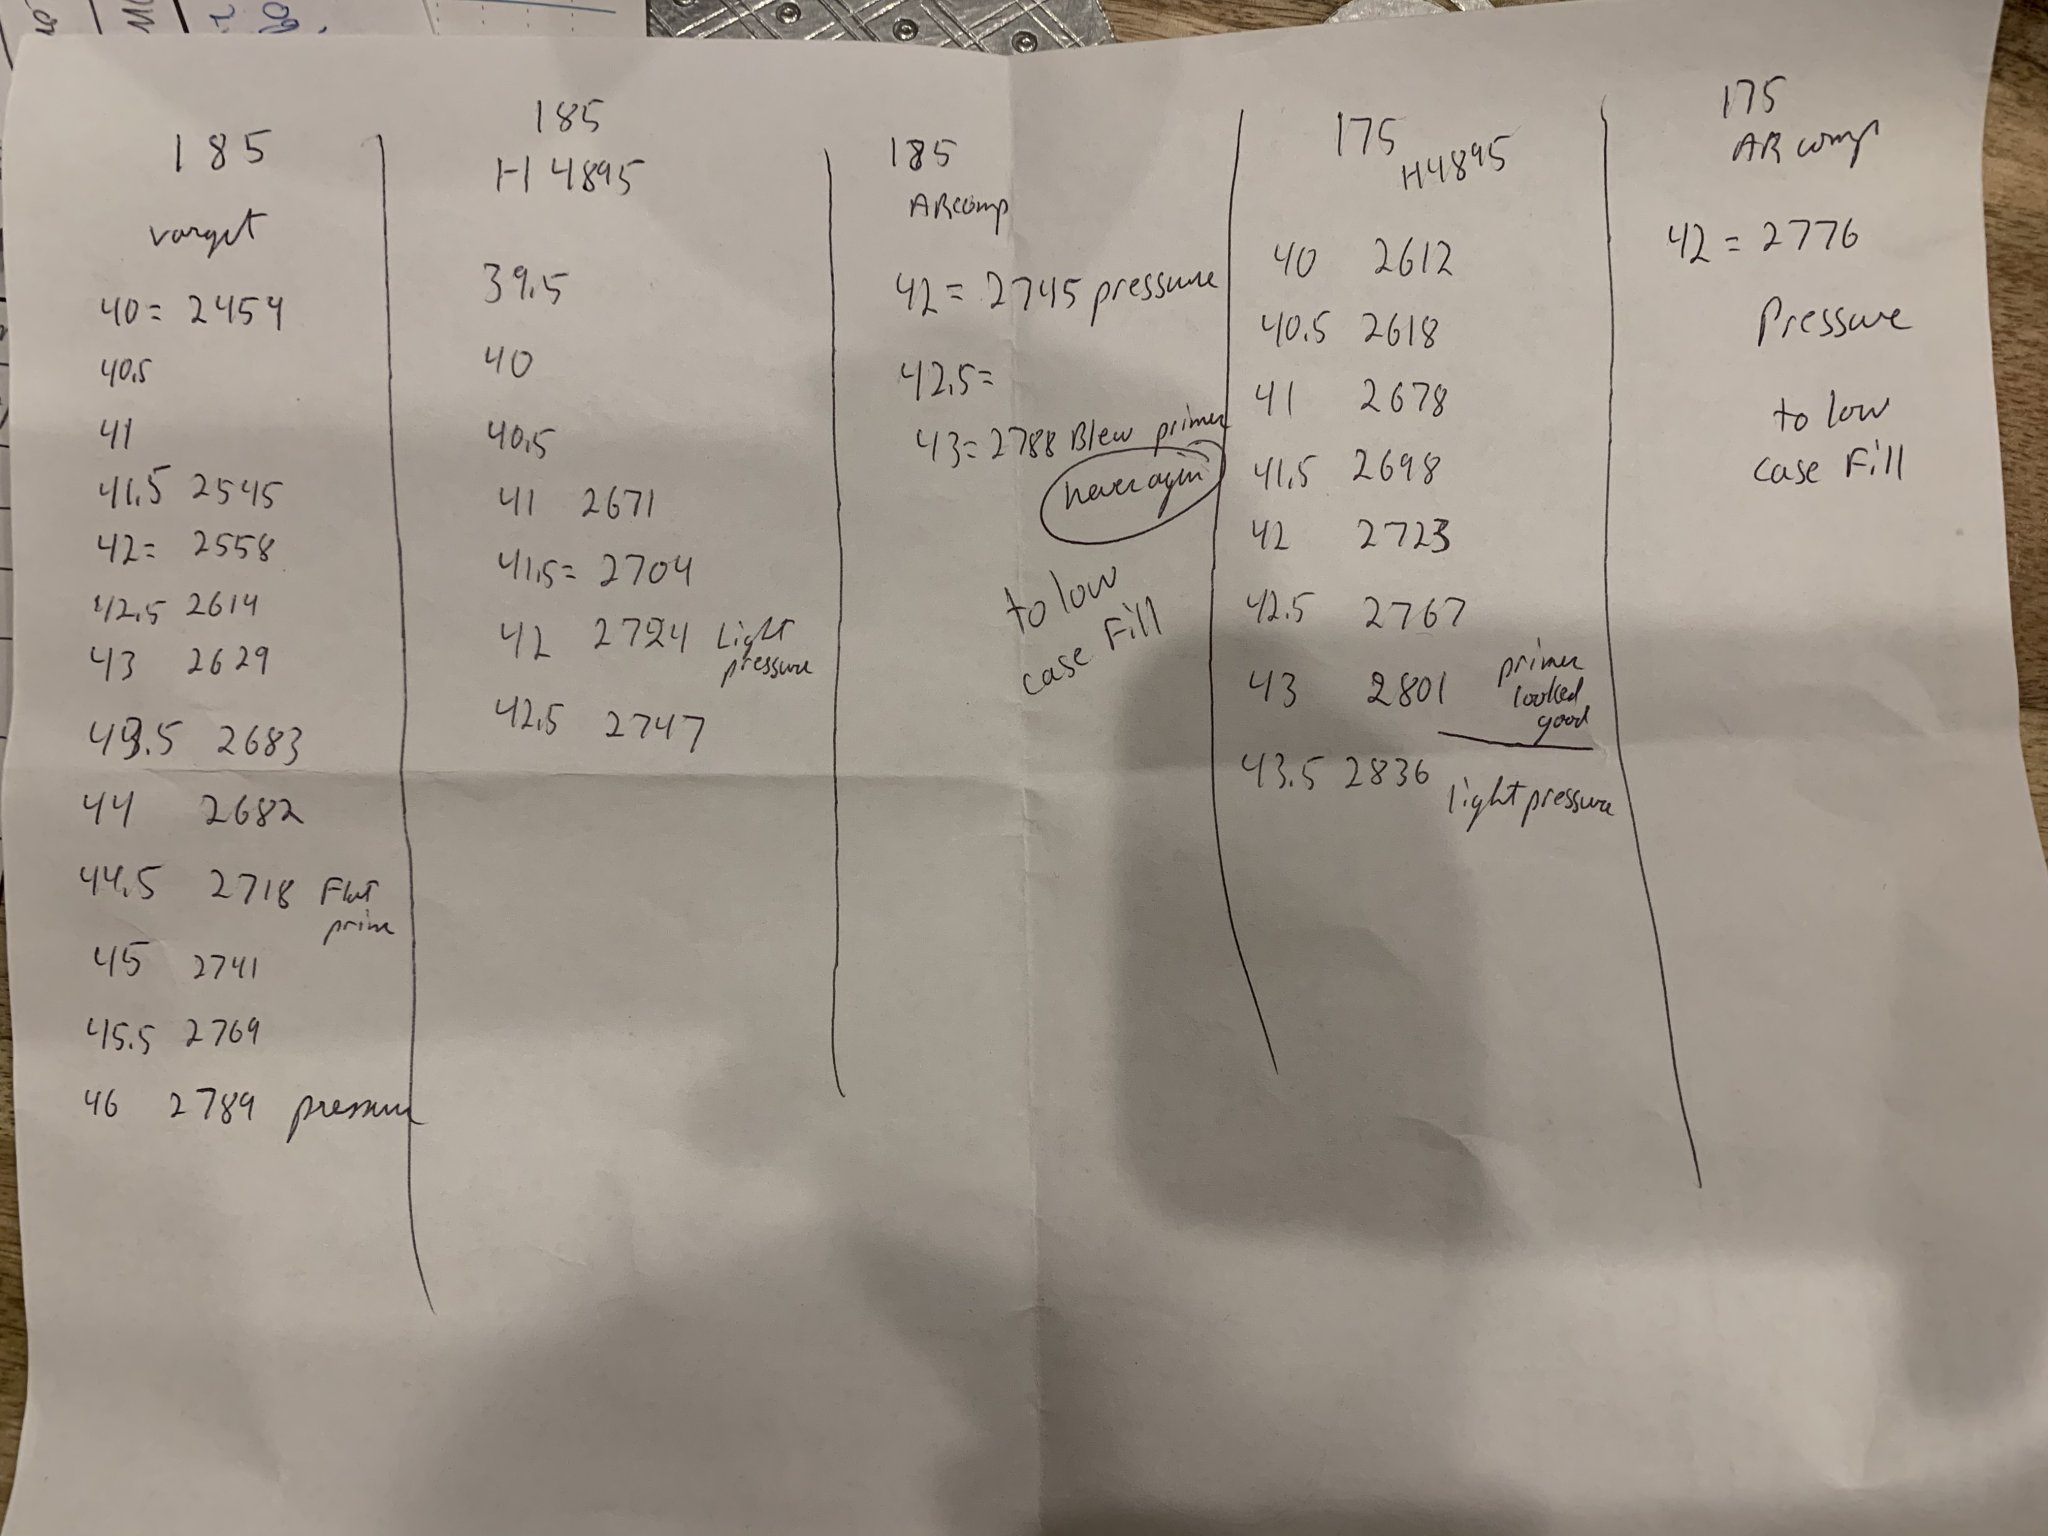 185
varget
40 = 2454
40.5
41
41.5 2545
42 = 2558
42.5 2614
43 2629
43.5 2683
44 2682
44.5 2718 Flat
prime
45 2741
45.5 2769
46 2789 pressure
185
H4895
39.5
40
40.5
41 2671
41.5 = 2704
42 2724 Light
pressure
42.5 2747
185
ARcomp
42 = 2745 pressure
42.5 =
43 = 2788 Blew primer
never again
to low
case Fill
175
H4895
40 2612
40.5 2618
41 2678
41.5 2698
42 2723
42.5 2767
43 2801 primer
looked
good
43.5 2836 light pressure
175
AR comp
42 = 2776
Pressure
to low
case Fill